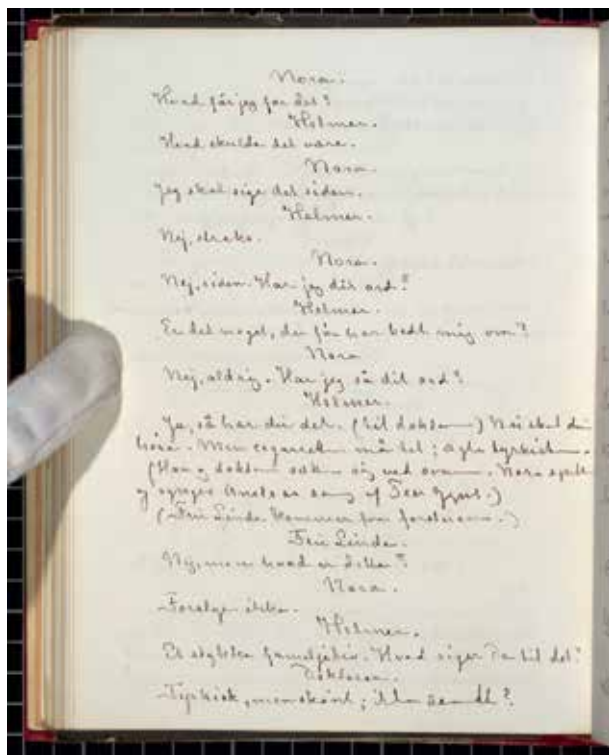 Nora.
Hvad får jeg for det?
Helmer.
Hvad skulde det være.
Nora.
Jeg skal sige det siden.
Helmer.
Nej, straks.
Nora.
Nej, siden. Har jeg dit ord?
Helmer.
Er det noget, du før har bedt mig om?
Nora
Nej, aldrig. Har jeg så dit ord?
Helmer.
Ja, så har du det. (til doktoren) Nu skal du
høre. Men cigaretten må til; ægte tyrkiske.
(Han og doktoren sætter sig ved ovnen. Nora spiller
og synger Anitras sang af Peer Gynt.)
(Fru Linde kommer fra forstuen.)
Fru Linde.
Nej, men hvad er dette?
Nora.
Forstyr ikke.
Helmer.
Et stykke familjeliv. Hvad siger De til det?
Doktoren.
Tyrkisk, men skønt; ikke sandt?